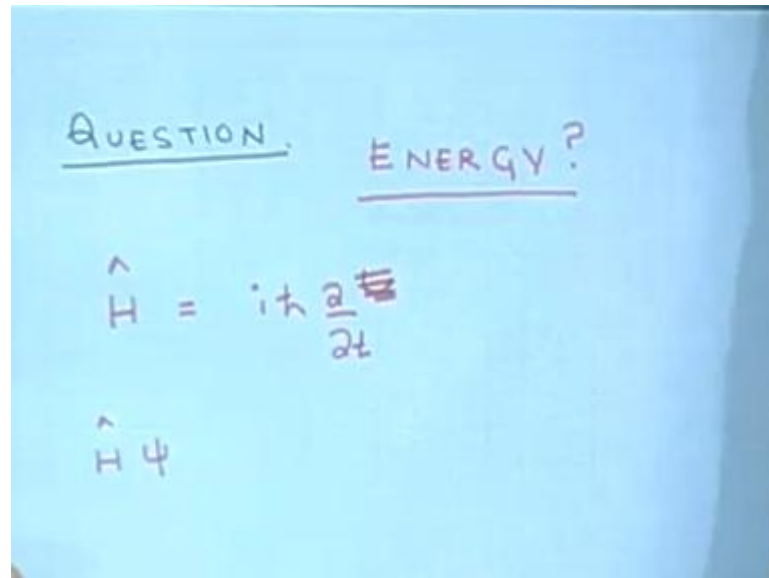 QUESTION.
ENERGY?
Ĥ = iħ ∂/∂t
Ĥ ψ